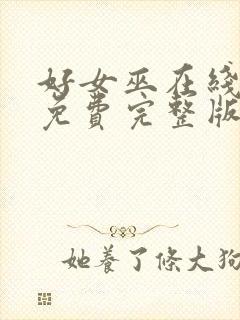 好女巫在綫
免費完整版
她養了條大狗